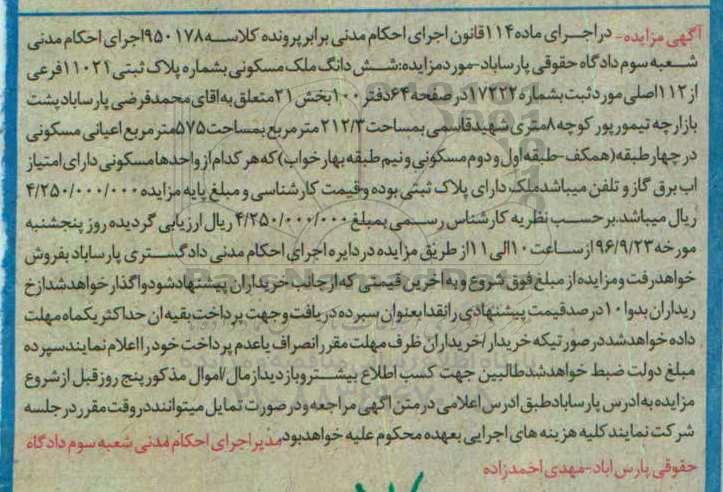 آگهی مزایده- در اجرای ماده ۱۱۴ قانون اجرای احکام مدنی برابر پرونده کلاسه ۹۵۰۱۷۸ اجرای احکام مدنی
شعبه سوم دادگاه حقوقی پارساباد-مورد مزایده:شش دانگ ملک مسکونی بشماره پلاک ثبتی ۱۱۰۲۱ فرعی
از ۱۱۲ اصلی مورد ثبت بشماره ۱۷۲۲۲ در صفحه ۶۴ دفتر ۱۰۰ بخش ۲۱ متعلق به اقای محمد فرضی پارساباد پشت
بازارچه تیمورپور کوچه ۸ متری شهید قاسمی بمساحت ۲۱۲/۳ متر مربع بمساحت ۵۷۵ متر مربع اعیانی مسکونی
در چهار طبقه(همکف-طبقه اول و دوم مسکونی و نیم طبقه بهار خواب) که هر کدام از واحدها مسکونی دارای امتیاز
اب برق گاز و تلفن میباشد ملک دارای پلاک ثبتی بوده وقیمت کارشناسی و مبلغ پایه مزایده ۴/۲۵۰/۰۰۰/۰۰۰
ریال میباشد.بر حسب نظریه کارشناس رسمی بمبلغ ۴/۲۵۰/۰۰۰/۰۰۰ ریال ارزیابی گردیده روز پنجشنبه
مورخه ۹۶/۹/۲۳ از ساعت ۱۰ الی ۱۱ از طریق مزایده در دایره اجرای احکام مدنی دادگستری پارساباد بفروش
خواهد رفت ومزایده از مبلغ فوق شروع و به اخرین قیمتی که از جالب خریداران پیشنهاد شود واگذار خواهد شد از خ
ریداران بدوا ۱۰ درصد قیمت پیشنهادی را نقدا بعنوان سپرده دریافت و جهت پرداخت بقیه ان حداکثر یکماه مهلت
داده خواهد شد در صورتیکه خریدار/خریداران ظرف مهلت مقرر انصراف یا عدم پرداخت خود را اعلام نمایند سپرده
مبلغ دولت ضبط خواهد شد طالبین جهت کسب اطلاع بیشتر و باز دید از مال/اموال مذکور پنج روز قبل از شروع
مزایده به ادرس پارساباد طبق ادرس اعلامی در متن اگهی مراجعه و در صورت تمایل میتوانند در وقت مقرر در جلسه
شرکت نمایند کلیه هزینه های اجرایی بعهده محکوم علیه خواهد بود مدیر اجرای احکام مدنی شعبه سوم دادگاه
حقوقی پارس اباد-مهدی احمدزاده